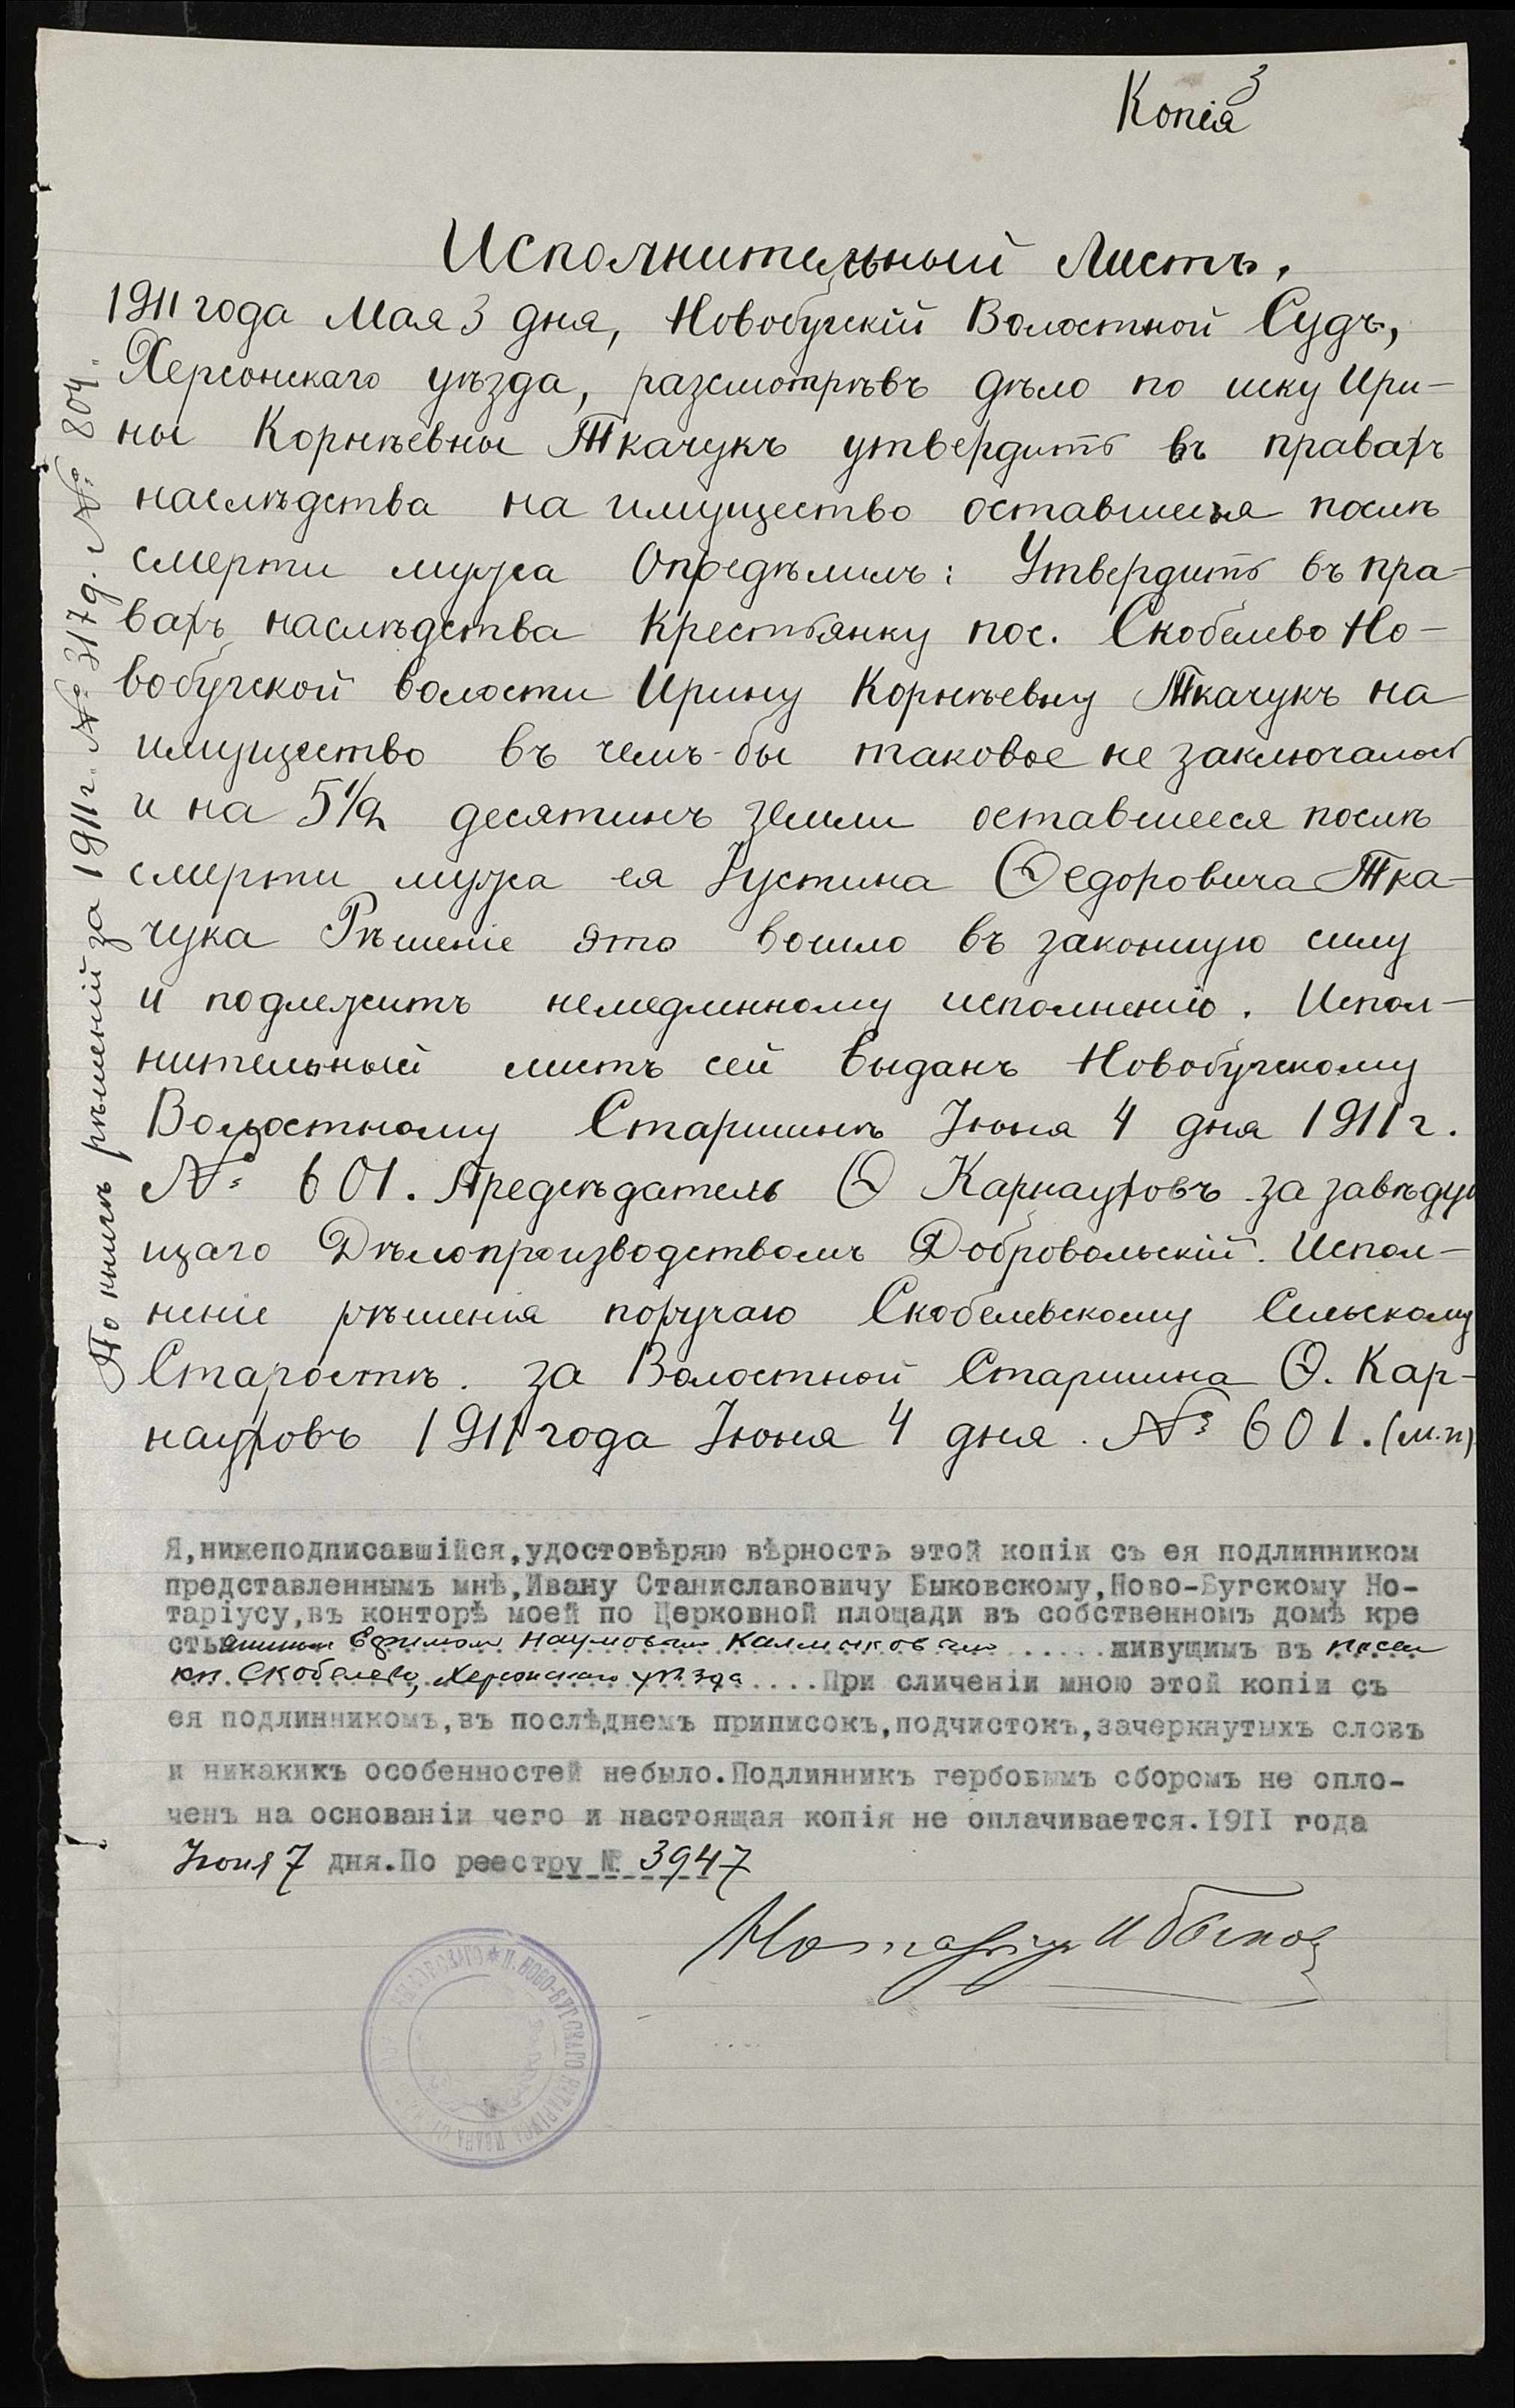 3
Копія
Исполнительный Листъ.
1911 года Мая 3 дня, Новобугскій Волостной Судъ,
Херсонскаго уѣзда, разсмотрѣвъ дѣло по иску Ири-
ны Корнѣевны Ткачукъ утвердить въ правахъ
наслѣдства на имущество оставшееся послѣ
смерти мужа Опредѣлилъ: Утвердить въ пра-
вахъ наслѣдства Крестьянку пос. Скобелево Но-
вобугской волости Ирину Корнѣевну Ткачукъ на
имущество въ чемъ-бы таковое не заключалось
и на 5 1/2 десятинъ земли оставшееся послѣ
смерти мужа ея Іустина Ѳедоровича Тка-
чука Рѣшеніе это вошло въ законную силу
и подлежитъ немедленному исполненію. Испол-
нительный листъ сей выданъ Новобугскому
Волостному Старшинѣ Іюня 4 дня 1911 г.
№ 601. Предсѣдатель Ѳ Карнауховъ за завѣдую
щаго Дѣлопроизводствомъ Добровольскій. Испол-
неніе рѣшенія поручаю Скобелевскому Сельскому
Старостѣ. за Волостной Старшина Ѳ. Кар-
науховъ 1911 года Іюня 4 дня. № 601. (м.п)
По книгѣ рѣшеній за 1911 г. № 3179. № 804.
Я,нижеподписавшійся,удостовѣряю вѣрность этой копіи съ ея подлинником
представленнымъ мнѣ,Ивану Станиславовичу Быковскому,Ново-Бугскому Но-
таріусу,въ конторѣ моей по Церковной площади въ собственномъ домѣ кре
стьяниномъ Ефимом Наумовымъ Калмыковымъ ......живущимъ въ посел
кѣ. Скобелево, Херсонскаго уѣзда ....При сличеніи мною этой копіи съ
ея подлинникомъ,въ послѣднемъ приписокъ,подчистокъ,зачеркнутыхъ словъ
и никакихъ особенностей небыло.Подлинникъ гербовымъ сборомъ не опло-
ченъ на основаніи чего и настоящая копія не оплачивается.1911 года
Іюня 7 дня.По реестру № 3947
Нотаріус И Быков
Н. НОВО-БУГСКАГО НОТАРІУСА ИВАНА БЫКОВСКАГО